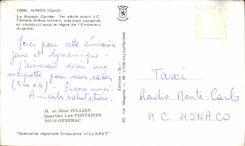 1006 - NIMES (Gard)
La Maison Carrée - 1er siècle avant J.C.
Temple Gréco-romain, très bien conservé
et construit sous le règne de l'Empereur
Auguste.
Merci pour cette émission
jeune et dynamique -
J'aimerais avoir une
maquette pour un salon
(5m x 4). Encore
Merci
Amicales salutations.
M. et Mme JULLIAN
Quartier Les FONTAINES
30510 GENERAC
"Spécialité régionale Croquants VILLARET"
Taxi
Radio Monte-Carlo
M C MONACO